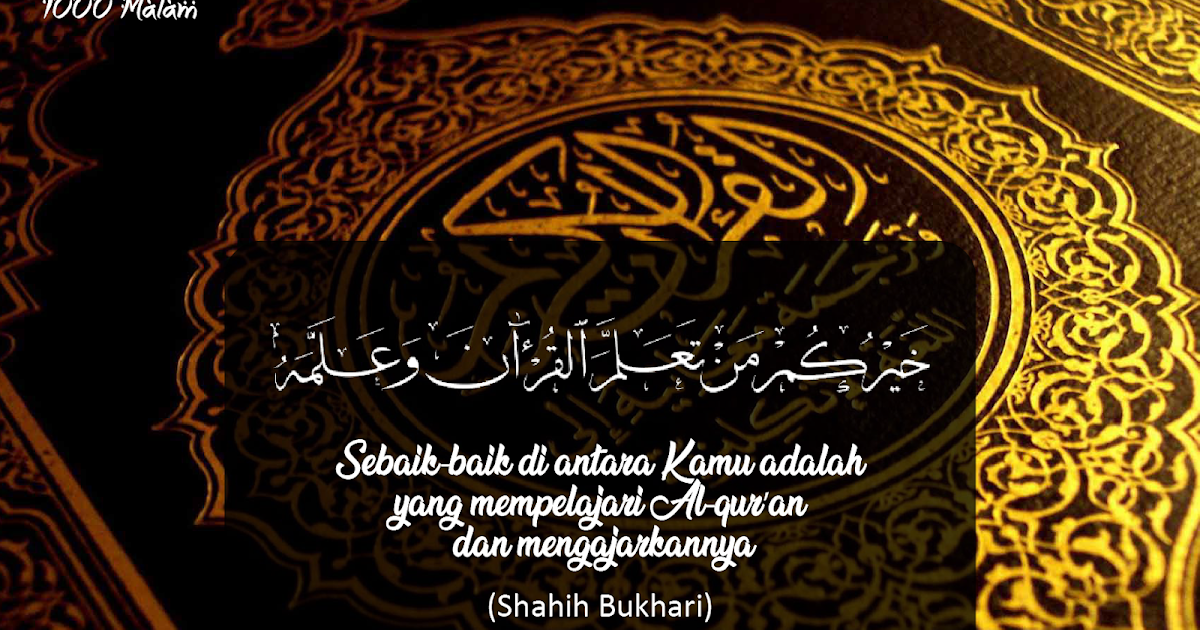 1000 Malam
القرآن الكريم
خَيْرُكُمْ مَنْ تَعَلَّمَ الْقُرْآنَ وَعَلَّمَهُ
Sebaik-baik di antara Kamu adalah
yang mempelajari Al-qur'an
dan mengajarkannya
(Shahih Bukhari)